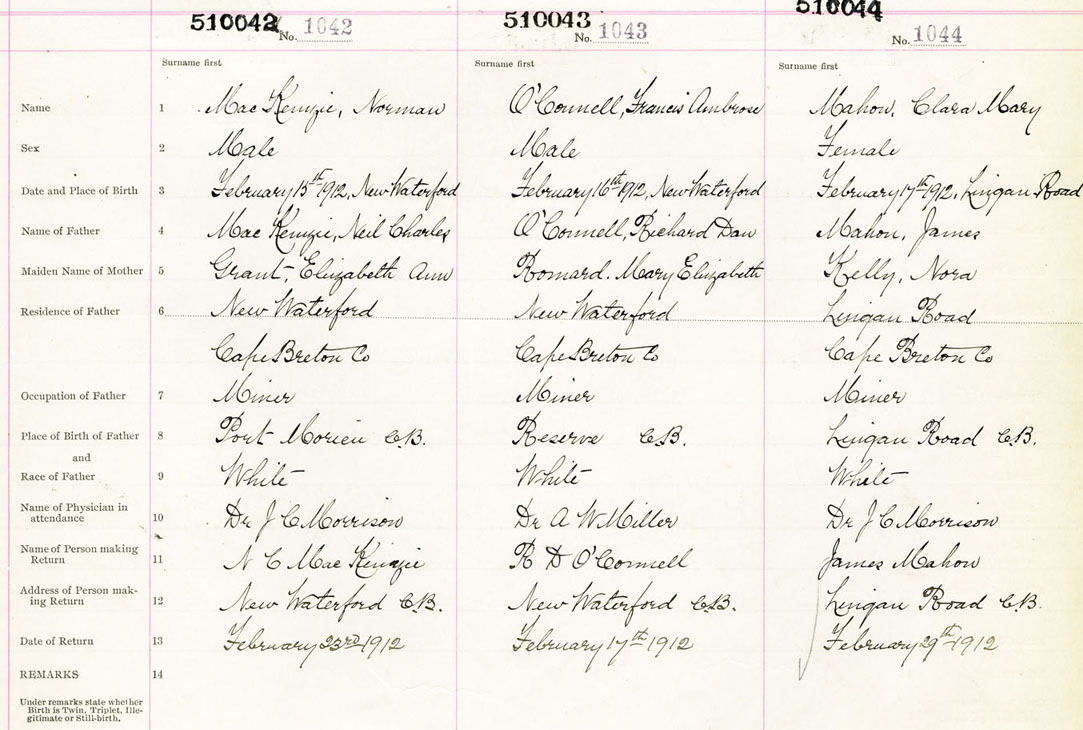 510042 No. 1042 510043 No. 1043 510044 No. 1044
Surname first Surname first Surname first
Name 1 MacKenzie, Norman O'Connell, Francis Ambrose Mahon, Clara Mary
Sex 2 Male Male Female
Date and Place of Birth 3 February 15th 1912, New Waterford February 16th 1912, New Waterford February 17th 1912, Lingan Road
Name of Father 4 MacKenzie, Neil Charles O'Connell, Richard Dan Mahon, James
Maiden Name of Mother 5 Grant, Elizabeth Ann Romard. Mary Elizabeth Kelly, Nora
Residence of Father 6 New Waterford New Waterford Lingan Road
Cape Breton Co Cape Breton Co Cape Breton Co
Occupation of Father 7 Miner Miner Miner
Place of Birth of Father 8 Port Morien C.B. Reserve C.B. Lingan Road C.B.
and
Race of Father 9 White White White
Name of Physician in
attendance 10 Dr J C Morrison Dr A W Miller Dr J C Morrison
Name of Person making
Return 11 N C MacKenzie R D O'Connell James Mahon
Address of Person mak-
ing Return 12 New Waterford C.B. New Waterford C.B. Lingan Road C.B.
Date of Return 13 February 23rd 1912 February 17th 1912 February 29th 1912
REMARKS 14
Under remarks state whether
Birth is Twin, Triplet, Ille-
gitimate or Still-birth.